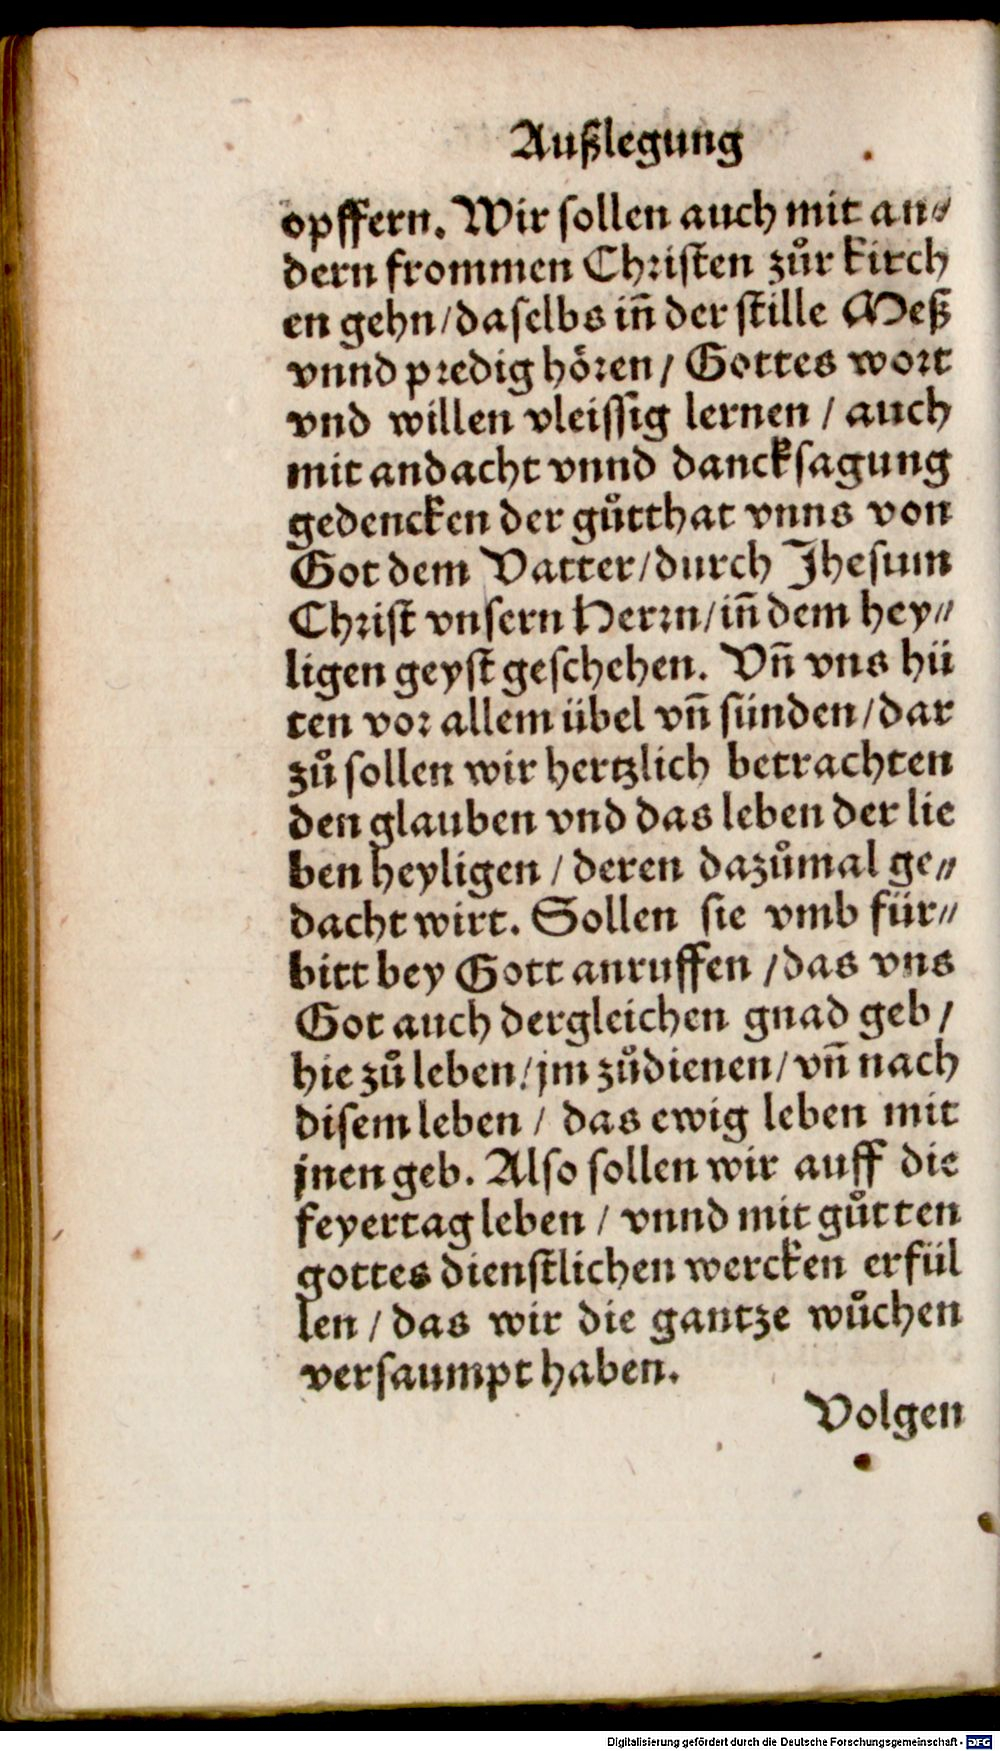 Außlegung
opffern. Wir sollen auch mit an⸗
dern frommen Christen zůr kirch
en gehn / daselbs in̄ der stille Meß
vnnd predig hören / Gottes wort
vnd willen vleissig lernen / auch
mit andacht vnnd dancksagung
gedencken der gůtthat vnns von
Got dem Vatter / durch Jhesum
Christ vnsern Herrn / in̄ dem hey⸗
ligen geyst geschehen. Vn̄ vns hü
ten vor allem übel vn̄ sünden / dar
zů sollen wir hertzlich betrachten
den glauben vnd das leben der lie
ben heyligen / deren dazůmal ge⸗
dacht wirt. Sollen sie vmb für⸗
bitt bey Gott anruffen / das vns
Got auch dergleichen gnad geb /
hie zů leben / jm zůdienen / vn̄ nach
disem leben / das ewig leben mit
jnen geb. Also sollen wir auff die
feyertag leben / vnnd mit gůtten
gottes dienstlichen wercken erfül
len / das wir die gantze wůchen
versaumpt haben.
Volgen
Digitalisierung gefördert durch die Deutsche Forschungsgemeinschaft - DFG